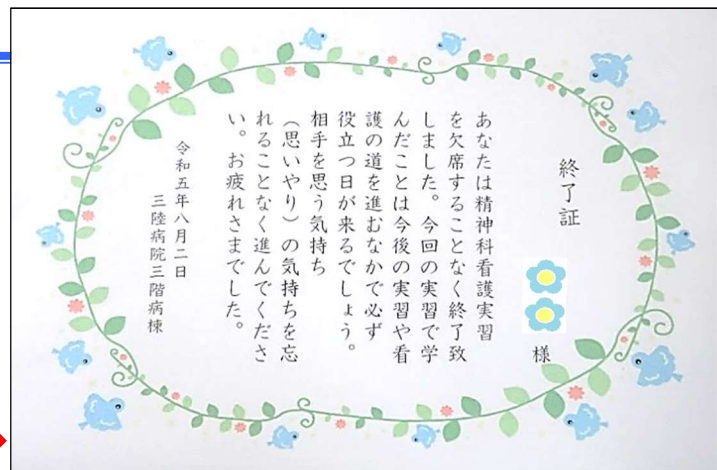 様
終了証
あなたは精神科看護実習
を欠席することなく終了致
しました。今回の実習で学
んだことは今後の実習や看
護の道を進むなかで必ず
役立つ日が来るでしょう。
相手を思う気持ち
（思いやり）の気持ちを忘
れることなく進んでくださ
い。お疲れさまでした。
令和五年八月二日
三陸病院三階病棟